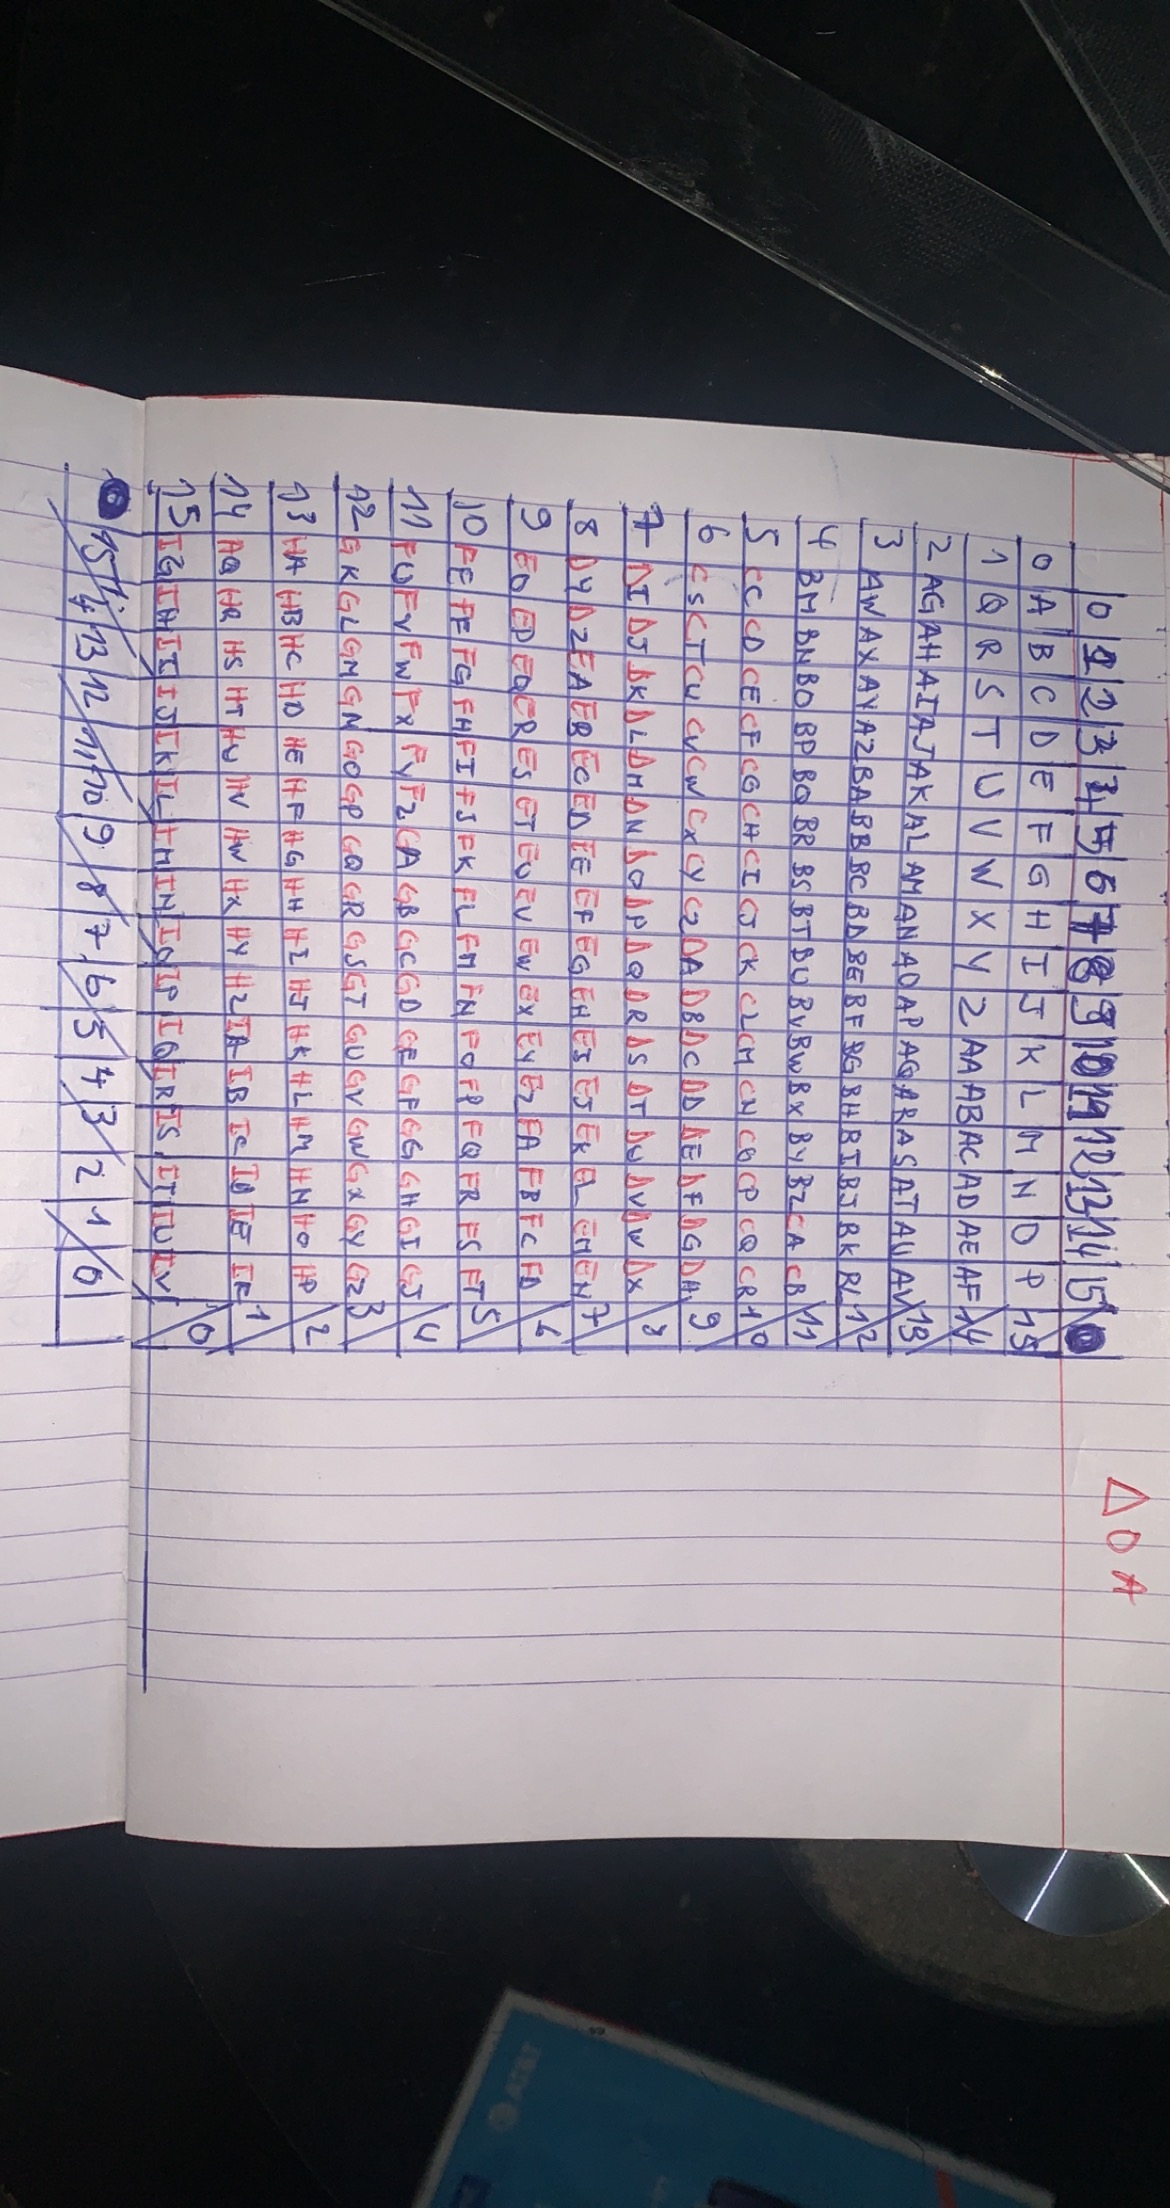 Δ O A
0 1 2 3 4 5 6 7 8 9 10 11 12 13 14 15
0 A B C D E F G H I J K L M N O P 15
1 Q R S T U V W X Y Z AA AB AC AD AE AF 14
2 AG AH AI AJ AK AL AM AN AO AP AQ AR AS AT AU AV 13
3 AW AX AY AZ BA BB BC BD BE BF BG BH BI BJ BK BL 12
4 BM BN BO BP BQ BR BS BT BU BV BW BX BY BZ CA CB 11
5 CC CD CE CF CG CH CI CJ CK CL CM CN CO CP CQ CR 10
6 CS CT CU CV CW CX CY CZ DA DB DC DD DE DF DG DH 9
7 DI DJ DK DL DM DN DO DP DQ DR DS DT DU DV DW DX 8
8 DY DZ EA EB EC ED EE EF EG EH EI EJ EK EL EM EN 7
9 EO EP EQ ER ES ET EU EV EW EX EY EZ FA FB FC FD 6
10 FE FF FG FH FI FJ FK FL FM FN FO FP FQ FR FS FT 5
11 FU FV FW FX FY FZ GA GB GC GD GE GF GG GH GI GJ 4
12 GK GL GM GN GO GP GQ GR GS GT GU GV GW GX GY GZ 3
13 HA HB HC HD HE HF HG HH HI HJ HK HL HM HN HO HP 2
14 AQ HR HS HT HU HV HW HX HY HZ IA IB IC ID IE IF 1
15 IG IH II IJ IK IL IM IN IO IP IQ IR IS IT IU IV 0
15 14 13 12 11 10 9 8 7 6 5 4 3 2 1 0
AT&T